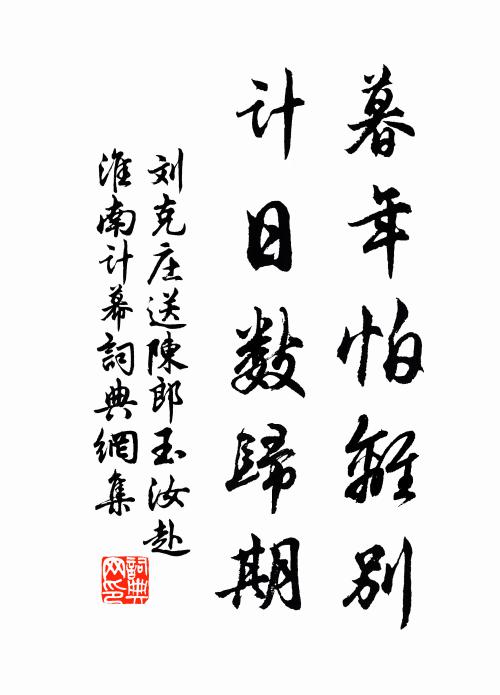 暮年怕離別
计日数歸期
刘克庄送陳郎玉汝赴
淮南计幕詞典網集
詞典
网印